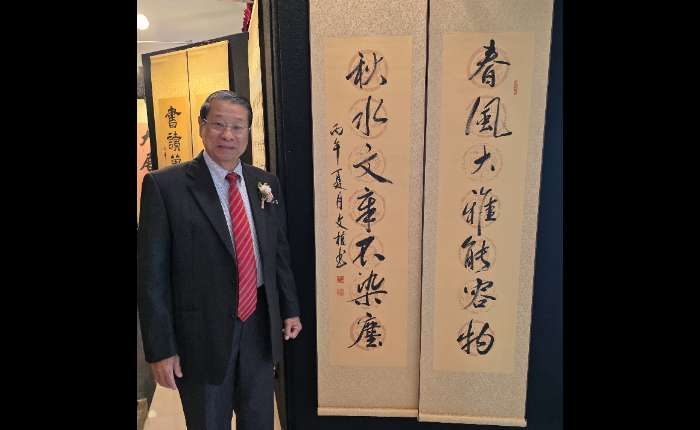 春風大雅能容物
秋水文章不染塵
丙午夏月文書
書讀